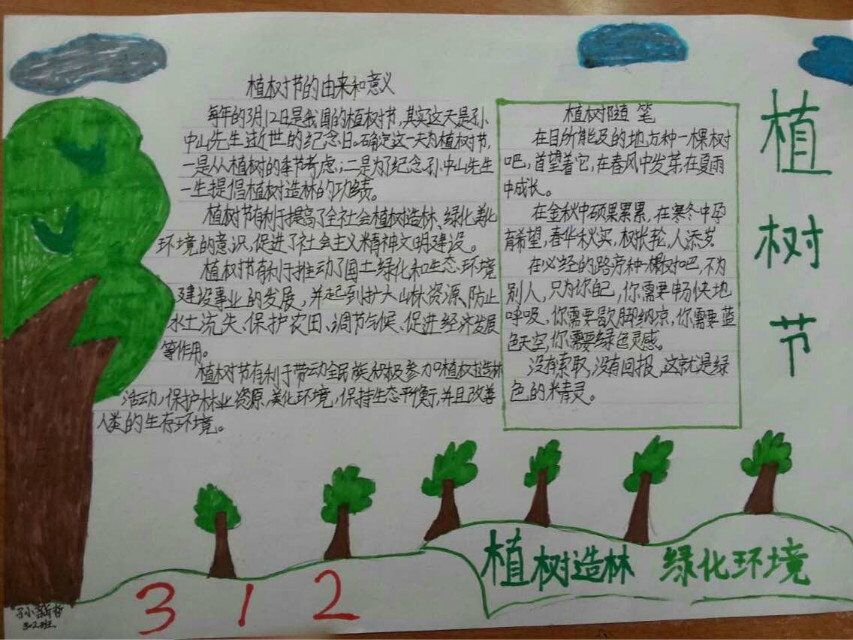 植树节的由来和意义
每年的3月12日是我国的植树节,其实这天是孙
中山先生逝世的纪念日。确定这一天为植树节,
一是从植树的季节考虑;二是为了纪念孙中山先生
一生提倡植树造林的功绩。
植树节有利于提高了全社会植树造林、绿化美化
环境的意识,促进了社会主义精神文明建设。
植树节有利于推动了国土绿化和生态环境
建设事业的发展,并起到扩大山林资源、防止
水土流失、保护农田、调节气候、促进经济发展
等作用。
植树节有利于带动全民族积极参加植树造林
活动,保护林业资源,美化环境,保持生态平衡,并且改善
人类的生存环境。
植树随笔
在目所能及的地方种一棵树
吧,首望着它,在春风中发芽,在夏雨
中成长。
在金秋中硕果累累,在寒冬中孕
育希望,春华秋实,树张轮,人添岁
在必经的路旁种一棵树吧,不为
别人,只为你自己,你需要畅快地
呼吸,你需要歇脚纳凉,你需要蓝
色天空,你需要绿色灵感。
没有索取,没有回报,这就是绿
色的精灵。
植树节
植树造林 绿化环境
3 1 2
302班